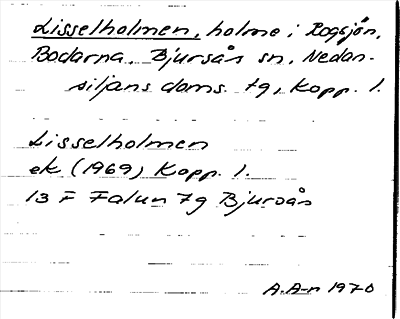 Lisselholmen, holme i Rogsjön,
Bodarna, Bjursås sn, Nedan-
siljans doms. tg, Kopp. l.
Lisselholmen
ek (1969) Kopp. l.
13 F Falun 7g Bjursås
A.A-r 1970